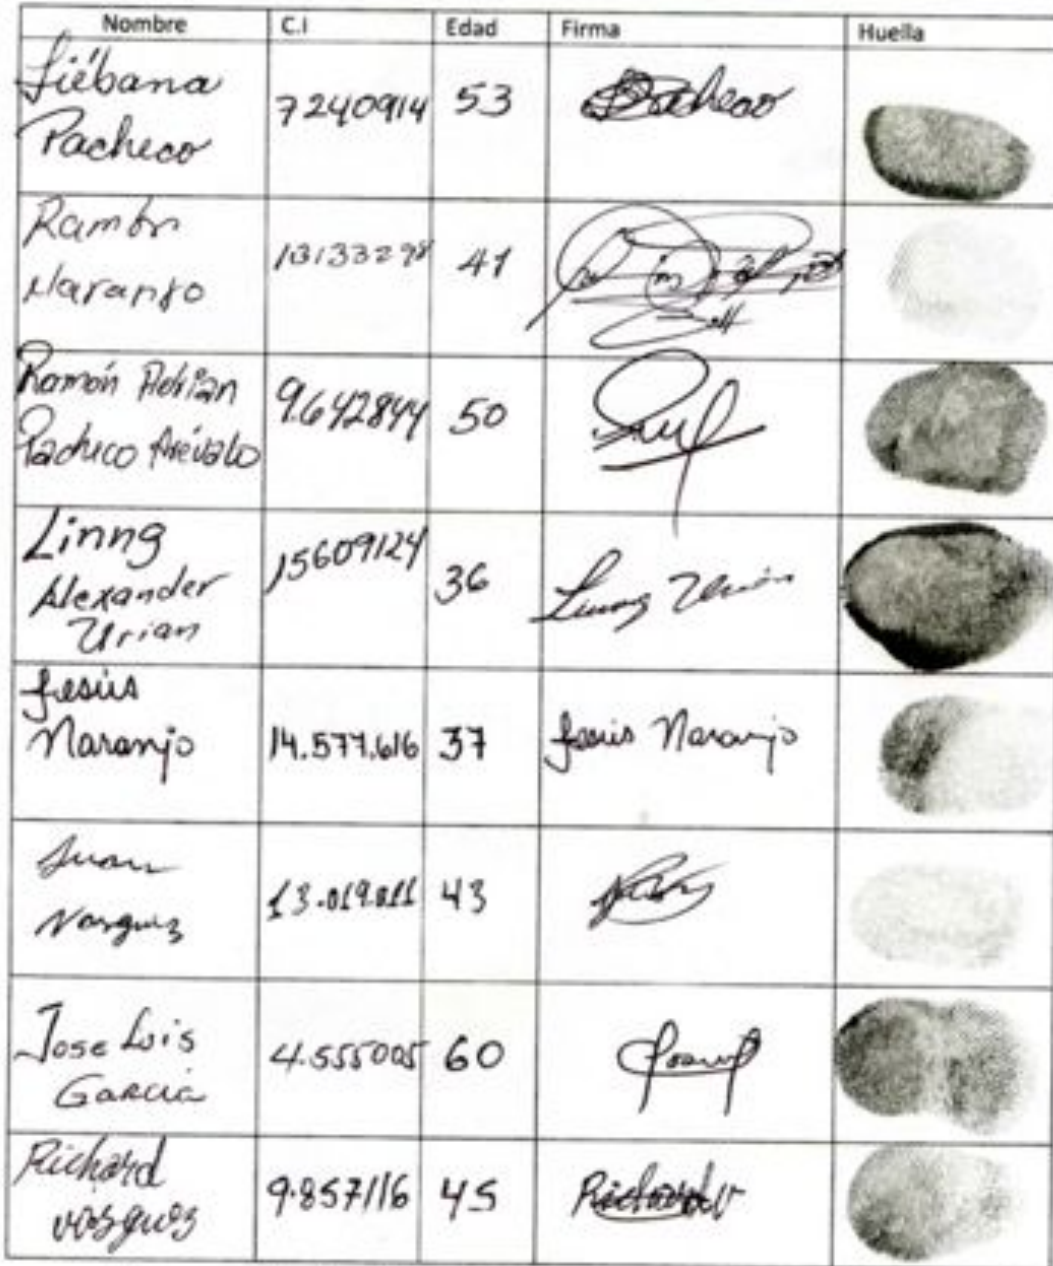 Nombre C.I Edad Firma Huella
Liébana
Pacheco 7240914 53 Pacheco
Ramón
Naranjo 13133298 41
Ramón Adrian
Pacheco Arévalo 9.642844 50
Linng
Alexander
Urian 15609124 36 Linng Urian
Jesús
Naranjo 14.577.616 37 Jesús Naranjo
Juan
Vasquez 13.019.011 43
Jose Luis
García 4.555005 60
Richard
vasquez 9.857116 45 Richard V